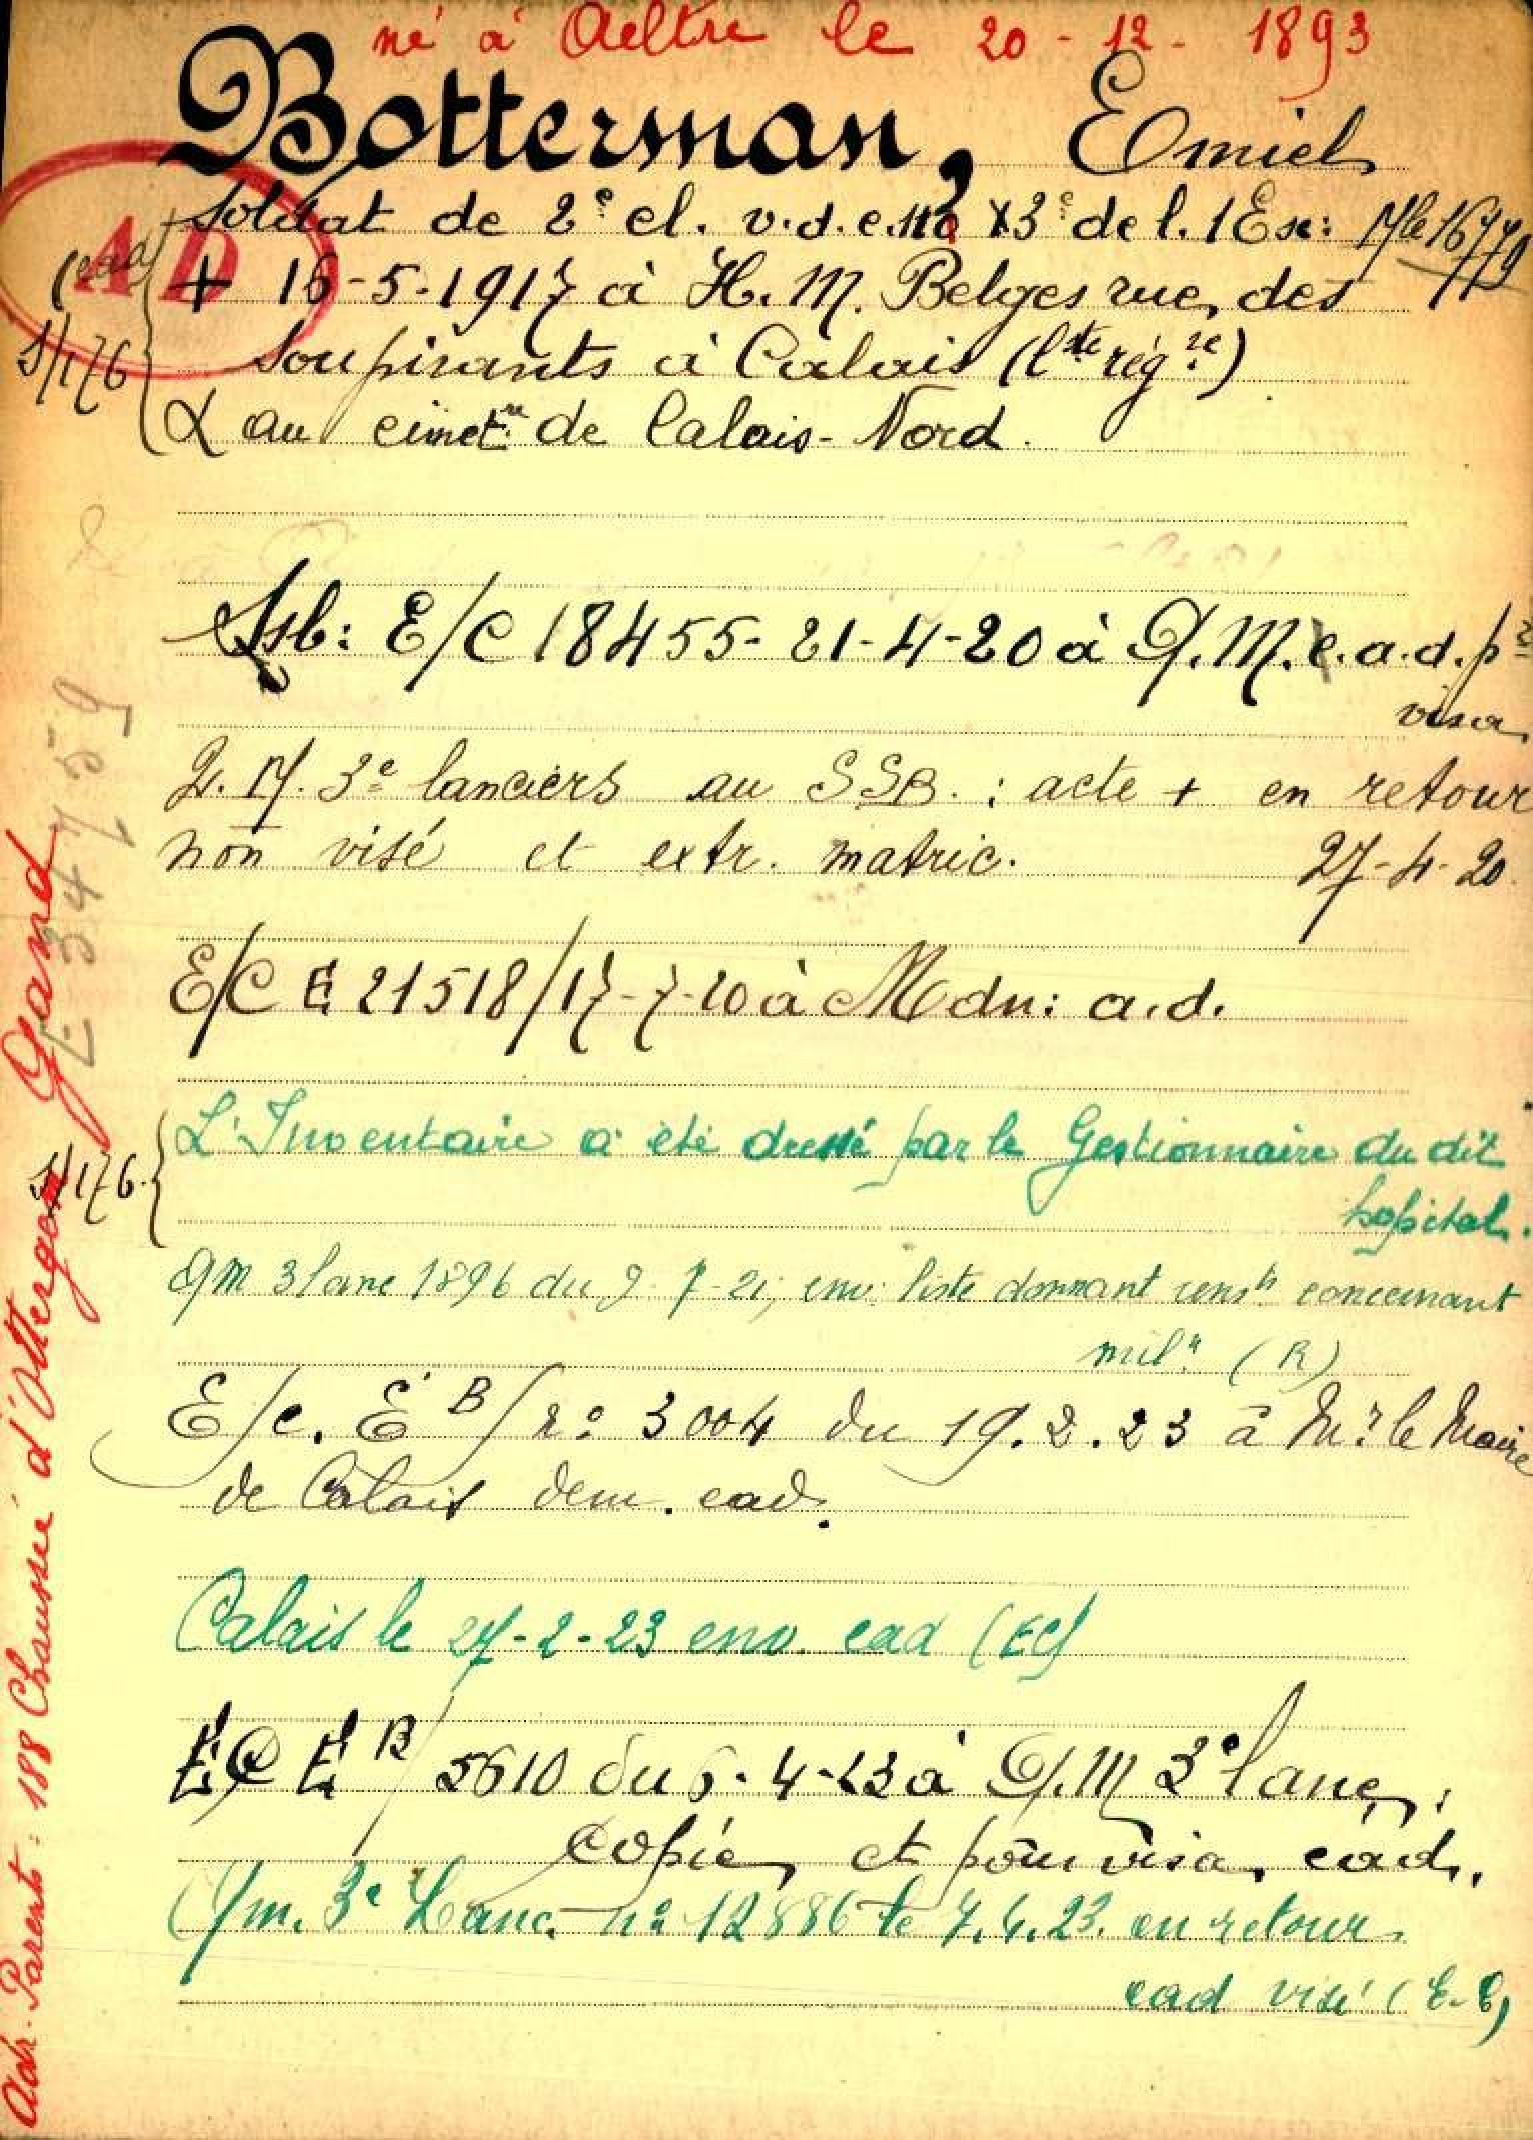 né à Aeltre le 20-12-1893
Botterman, Emiel
AD
Soldat de 2e cl. v.d.e. 3e de l. 1 Esc: Mle 16779
(cad)
+ 16-5-1917 à H. M. Belges rue des
S/176
Soupirants à Calais (lste régre)
au cimetre de Calais-Nord.
Ssb: E/C 18455-21-4-20 à Q.M. e.a.d. pr
visa
Q.M. 3e lanciers au SSB. : acte + en retour
non visé et extr. matric. 27-4-20.
E 34759
E/C E 21518/17-7-20 à Mdn: a.d.
L'Inventaire a été dressé par le Gestionnaire du dit
S/176.
hopital.
QM 3 lanc 1896 du 9-7-21, env: liste donnant rensts concernant
milre (R)
E/c. EB/no 3004 du 19.2.23 à Mr le Maire
de Calais dem. cad.
Calais le 27-2-23 env. cad (EC)
EC EB/5610 du 6-4-23 à Q.M 3e lanc.:
copie et pour visa cad.
Qm. 3e Lanc. no 12886 le 7.4.23. en retour
cad visé (E.C)
Adr. Parents: 188 Chaussée d'Ottergem Gand